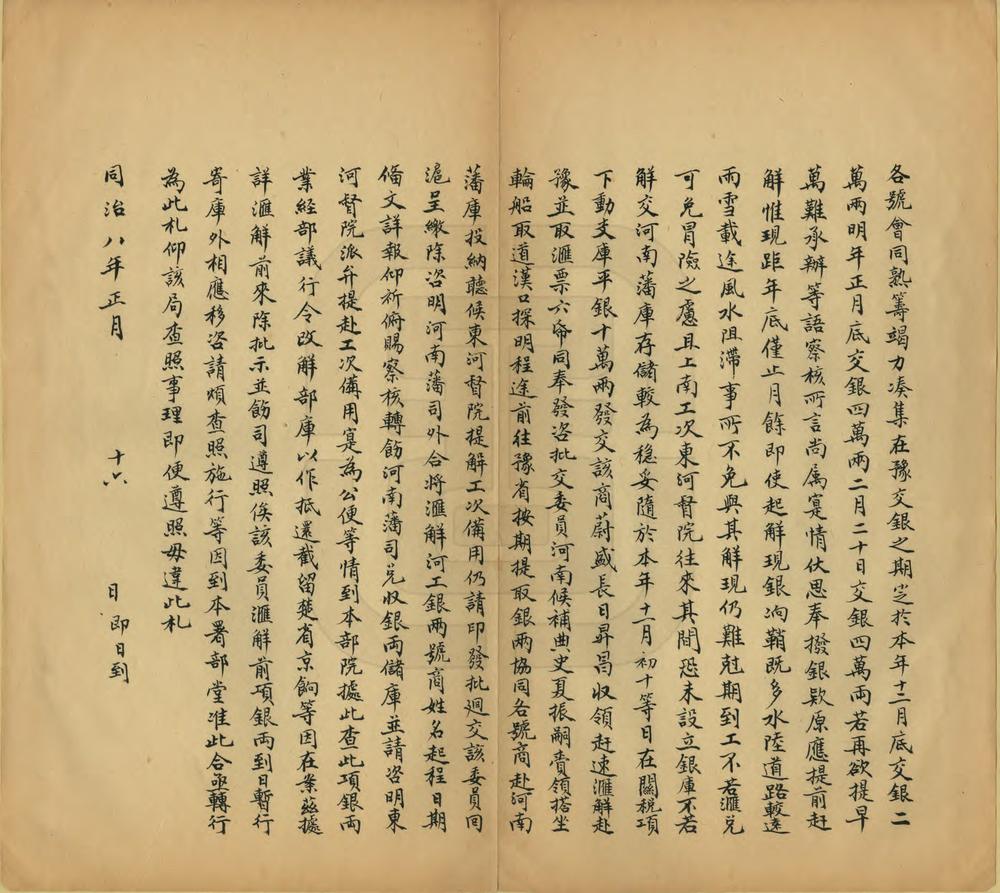 各號會同熟籌竭力湊集在豫交銀之期定於本年十二月底交銀二
萬兩明年正月底交銀四萬兩二月二十日交銀四萬兩若再欲提早
萬難承辦等語察核所言尚屬寔情伏思奉撥銀欵原應提前赶
解惟現距年底僅止月餘即使起解現銀泂鞘既多水陸道路較遠
雨雪載途風水阻滯事所不免與其解現仍難尅期到工不若滙兌
可免冒險之慮且上南工次東河督院往來其間恐未設立銀庫不若
解交河南藩庫存儲較為穏妥隨於本年十一月初十等日在關稅項
下動支庫平銀十萬兩發交該商蔚盛長日昇昌收領赶速滙解赴
豫並取滙票六帋同奉發咨批交委員河南候補典史夏振嗣賫領搭坐
輪船取道漢口探明程途前往豫省按期提取銀兩協同各號商赴河南
藩庫投納聽候東河督院提解工次備用仍請印發批廻交該委員回
滬呈繳除咨明河南藩司外合將滙解河工銀兩號商姓名起程日期
備文詳報仰祈俯賜察核轉飭河南藩司兌收銀兩儲庫並請咨明東
河督院派弁提赴工次備用寔為公便等情到本部院據此查此項銀兩
業経部議行令改解部庫以作抵還截留楚省京餉等因在案茲據
詳滙解前來除批示並飭司遵照俟該委員滙解前項銀兩到日暫行
寄庫外相應移咨請煩查照施行等因到本署部堂准此合亟轉行
為此札仰該局查照事理即便遵照毋違此札
同治八年正月 十六 日即日到